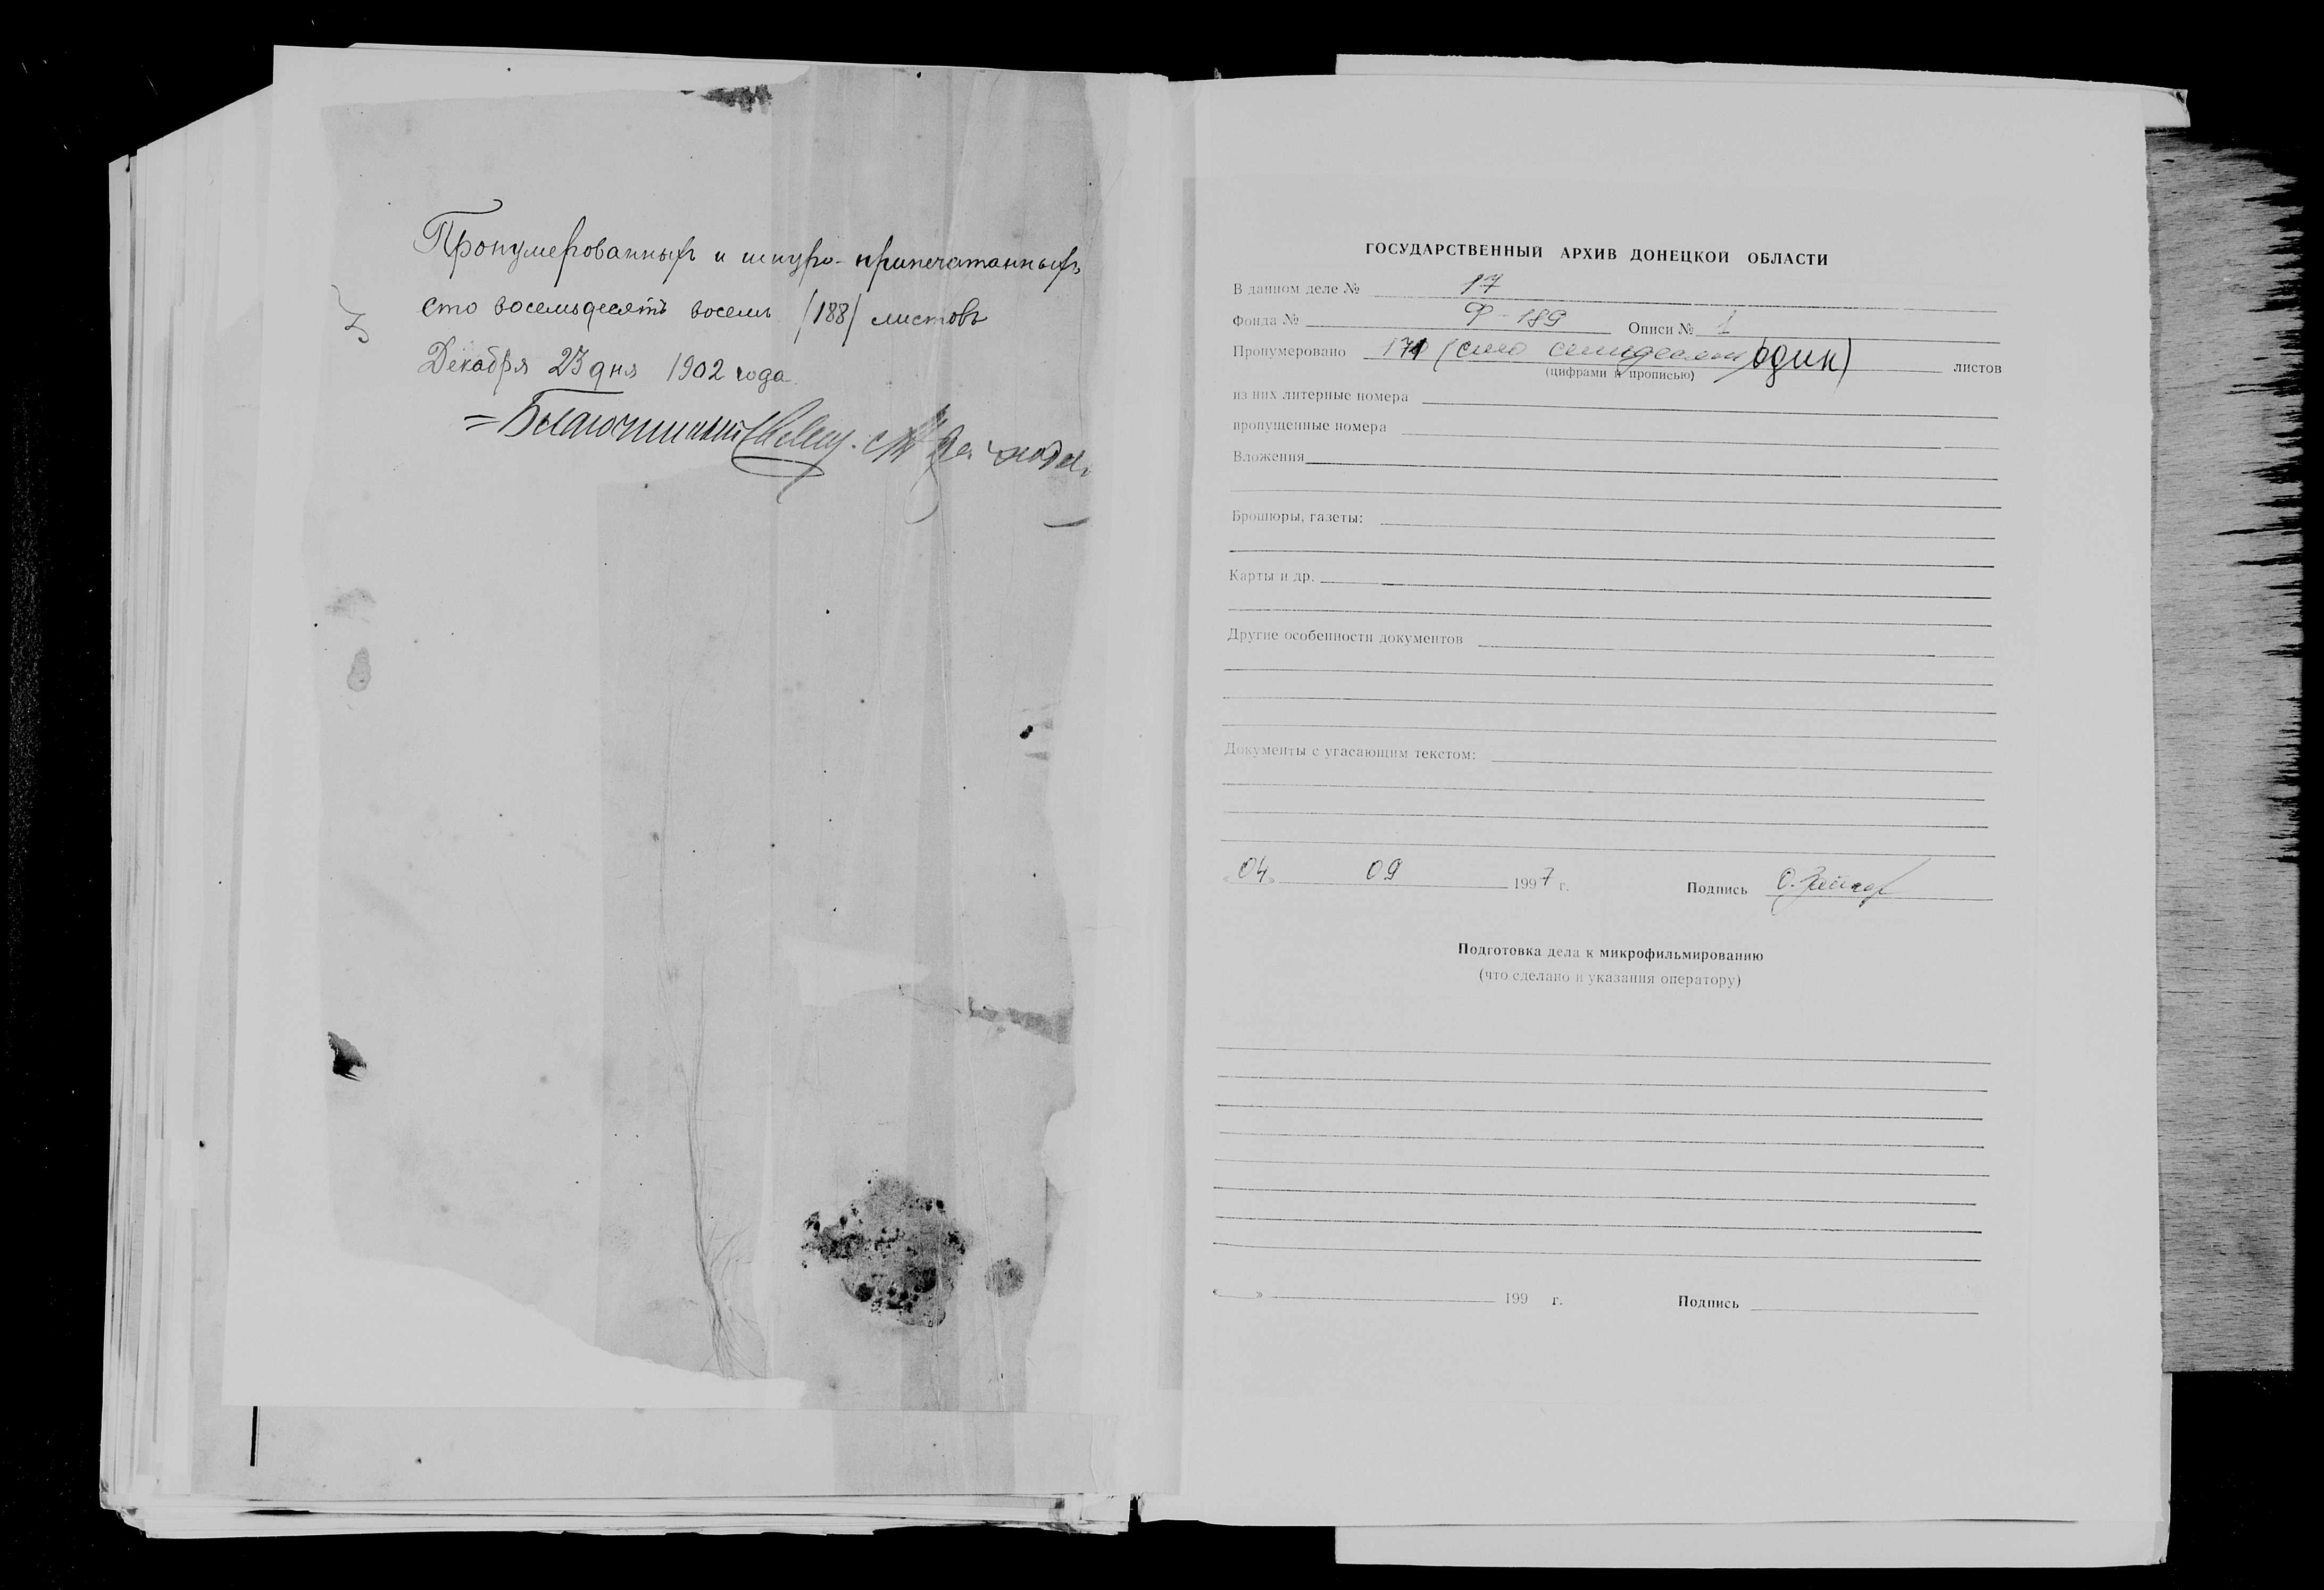 Пронумерованныхъ и шнуро-припечатанныхъ
сто восемьдесятъ восемь /188/ листовъ
Декабря 23 дня 1902 года
ГОСУДАРСТВЕННЫЙ АРХИВ ДОНЕЦКОЙ ОБЛАСТИ
В данном деле № 17
Фонда № Ф-189 Описи № 1
Пронумеровано 171 (сто семьдесят один) листов
(цифрами и прописью)
из них литерные номера
пропущенные номера
Вложения
Брошюры, газеты:
Карты и др.
Другие особенности документов
Документы с угасающим текстом:
«04» 09 1997 г. Подпись
Подготовка дела к микрофильмированию
(что сделано и указания оператору)
« » 199 г. Подпись